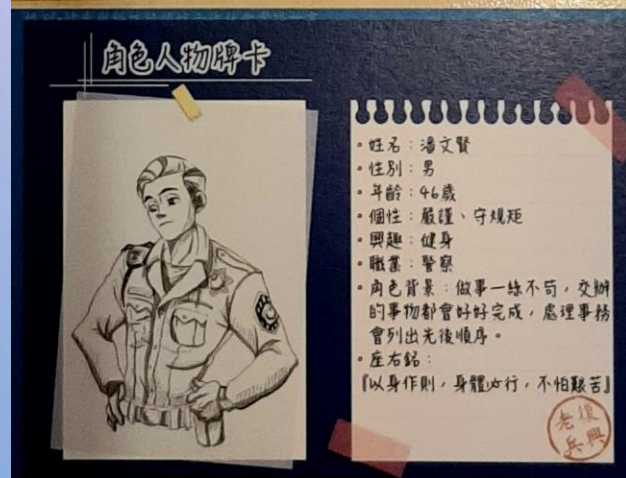 角色人物牌卡
・姓名：潘文賢
・性別：男
・年齡：46歲
・個性：嚴謹、守規矩
・興趣：健身
・職業：警察
・角色背景：做事一絲不苟，交辦
的事物都會好好完成，處理事務
會列出先後順序。
・座右銘：
『以身作則，身體力行，不怕艱苦』
老復
兵興